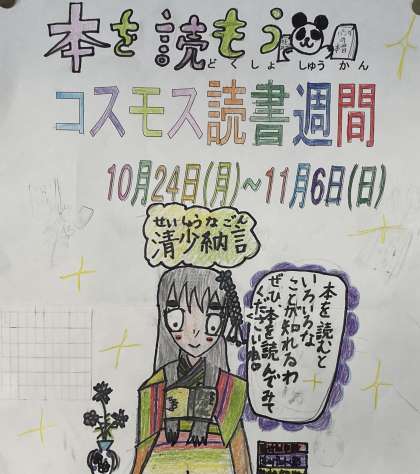 本を読もう
どくしょ しゅうかん
コスモス読書週間
10月24日(月)~11月6日(日)
せいしょうなごん
清少納言
本を読むと
いろいろな
ことが知れるわ
ぜひ、本を読んでみて
くださいね。